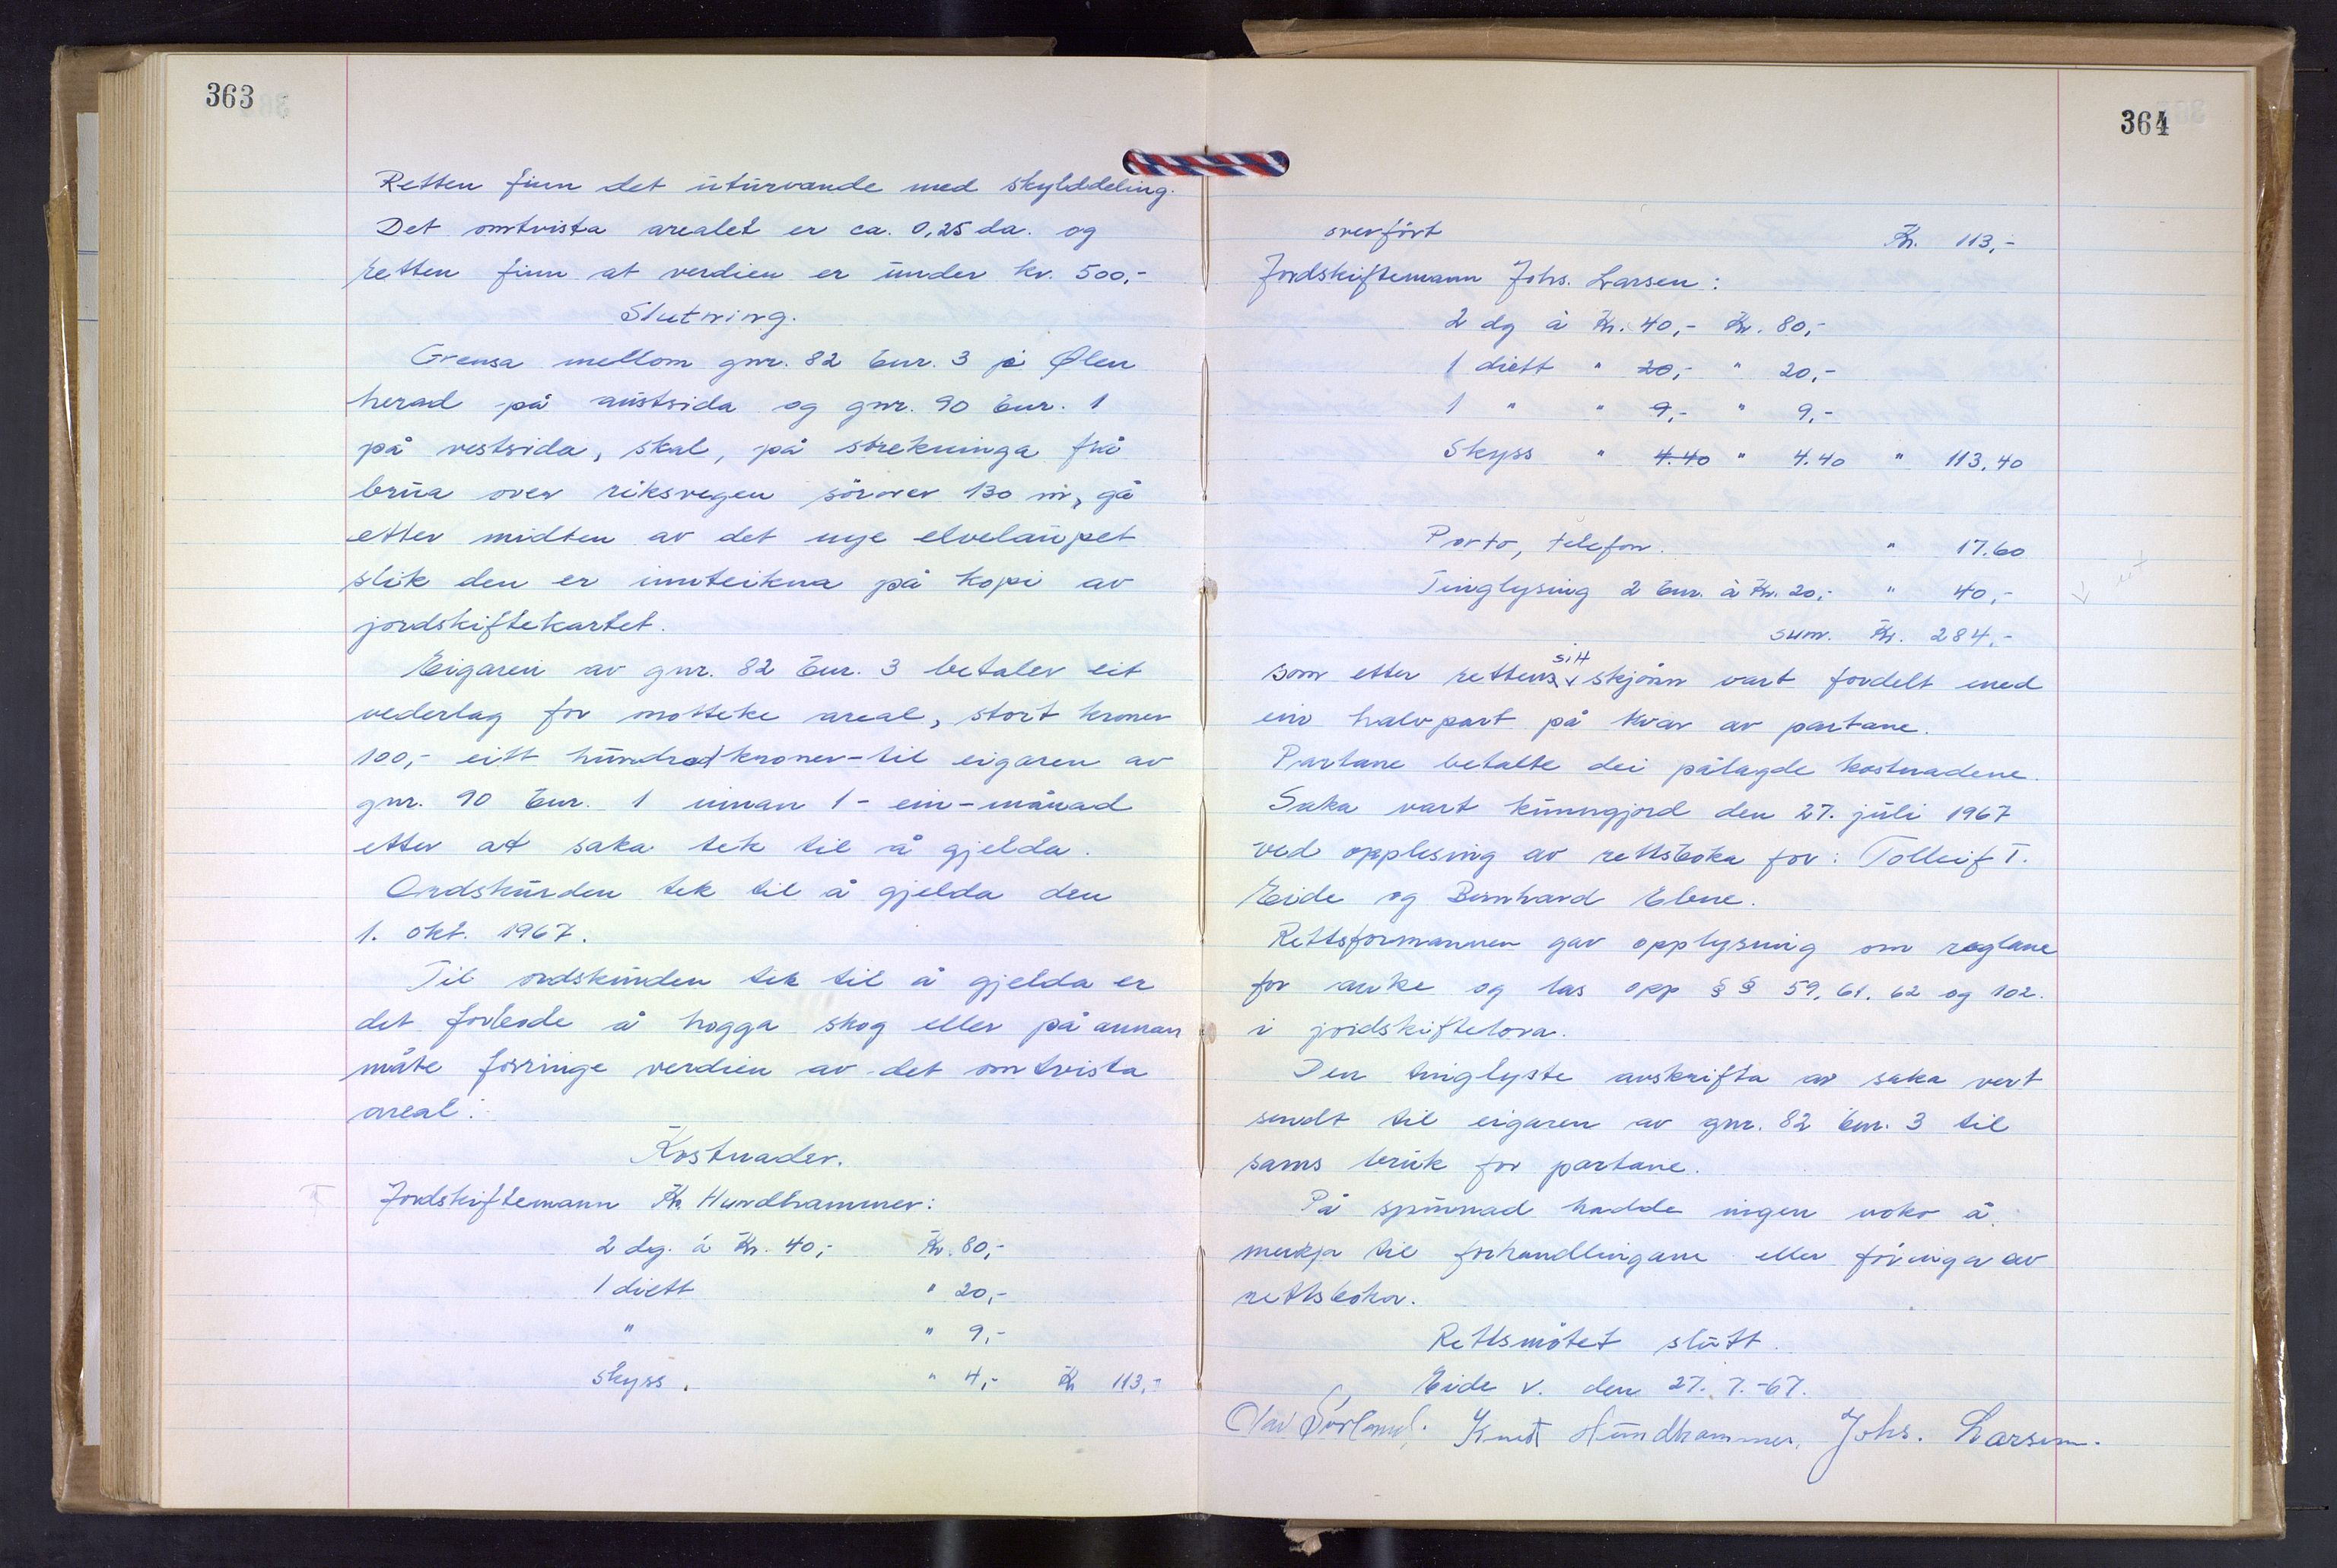 363
Retten finn det uturvande med skylddeling.
Det omtvista arealet er ca. 0,25 da. og
retten finn at verdien er under kr. 500,-
Slutning.
Grensa mellom gnr. 82 bnr. 3 i Ølen
herad på austsida og gnr. 90 bnr. 1
på vestsida, skal, på strekninga frå
brua over riksvegen sörover 130 m, gå
etter midten av det nye elvelaupet
slik den er innteikna på kopi av
jordskiftekartet.
Eigaren av gnr. 82 bnr. 3 betaler eit
vederlag for motteke areal, stort kroner
100,- eitt hundrad kroner - til eigaren av
gnr. 90 bnr. 1 innan 1 - ein - månad
etter at saka tek til å gjelda.
Ordskurden tek til å gjelda den
1. okt. 1967.
Til ordskurden tek til å gjelda er
det forbode å hogga skog eller på annan
måte forringe verdien av det omtvista
areal.
Kostnader.
Jordskiftemann Kn. Hundhammer:
2 dg. à Kr. 40,- Kr. 80,-
1 diett " 20,-
" " 9,-
Skyss. " 4,- Kr 113,-
364
overfört Kr. 113,-
Jordskiftemann Johs. Larsen:
2 dg à Kr. 40,- Kr. 80,-
1 diett " 20,- " 20,-
1 " " 9,- " 9,-
Skyss " 4.40 " 4.40 " 113,40
Porto, telefon. " 17.60
Tinglysing 2 bnr. à Kr. 20,- " 40,-
sum. Kr. 284,-
som etter rettens sitt skjönn vart fordelt med
ein halvpart på kvar av partane.
Partane betalte dei pålagde kostnadene.
Saka vart kunngjord den 27. juli 1967
ved opplesing av rettsboka for: Tolleif T.
Eide og Bernhard Ebne.
Rettsformannen gav opplysning om reglane
for anke og las opp §§ 59, 61, 62 og 102.
i jordskiftelova.
Den tinglyste avskrifta av saka vert
sendt til eigaren av gnr. 82 bnr. 3 til
sams bruk for partane.
På spurnad hadde ingen noko å
merkja til forhandlingane eller föringa av
rettsboka.
Rettsmötet slutt.
Eide v. den 27. 7.-67.
Olav Sörland. Knut Hundhammer. Johs. Larsen.